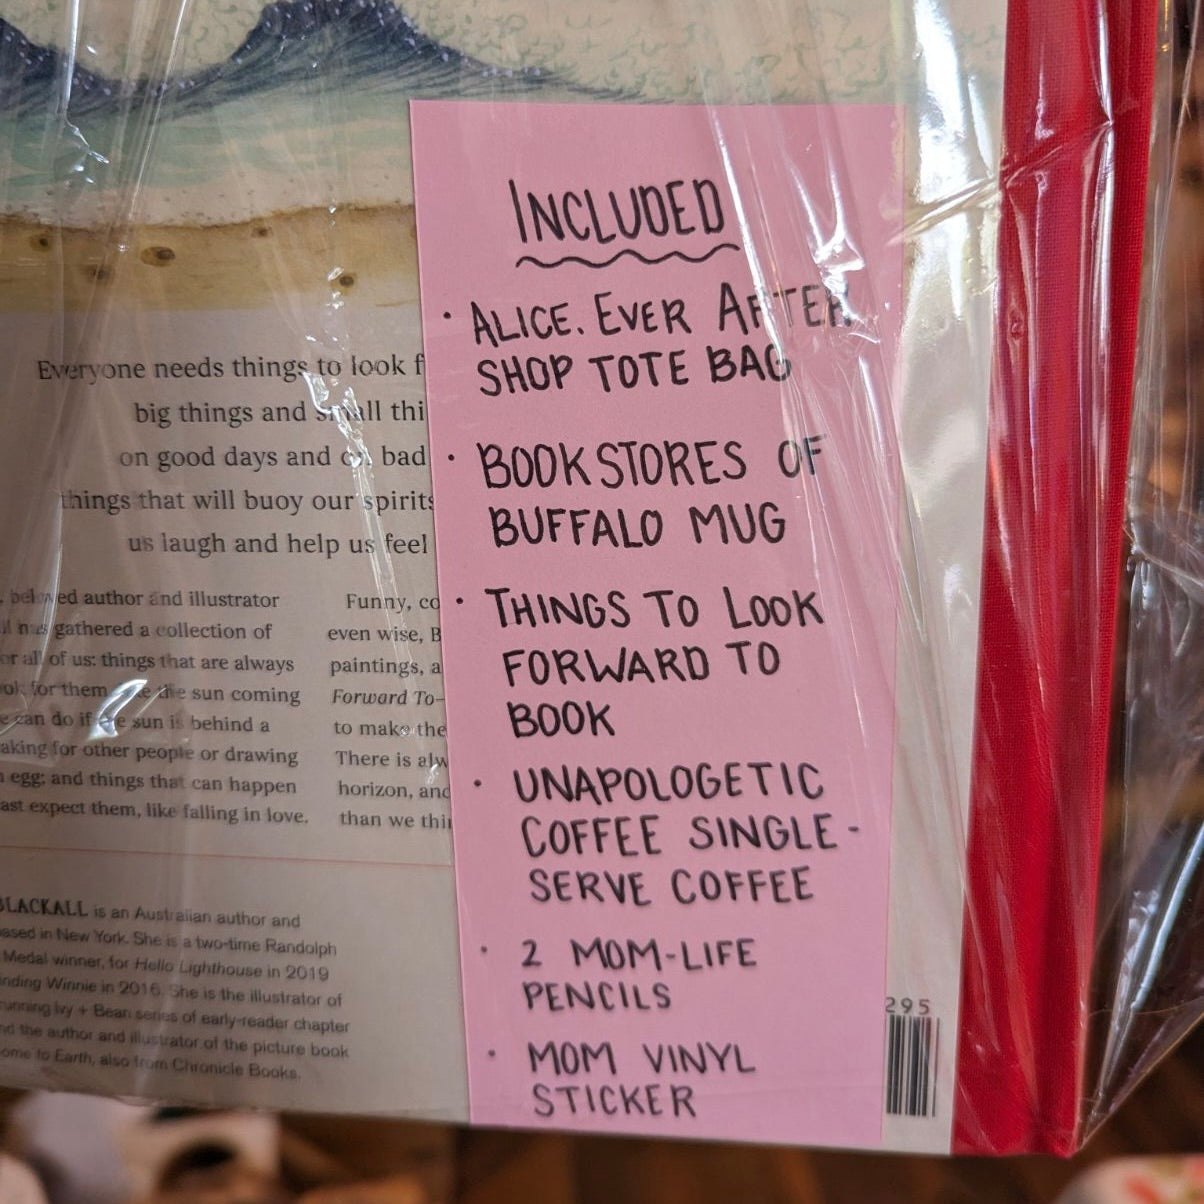 INCLUDED
• ALICE, EVER AFTER
SHOP TOTE BAG
• BOOKSTORES OF
BUFFALO MUG
• THINGS TO LOOK
FORWARD TO
BOOK
• UNAPOLOGETIC
COFFEE SINGLE-
SERVE COFFEE
• 2 MOM-LIFE
PENCILS
• MOM VINYL
STICKER
Everyone needs things to look
big things and small
on good days and on bad
things that will buoy our spirits
us laugh and help us feel
beloved author and illustrator
has gathered a collection of
for all of us: things that are always
look for them like the sun coming
we can do if the sun is behind a
making for other people or drawing
egg; and things that can happen
least expect them, like falling in love.
Funny,
even wise,
paintings,
Forward To—
to make the
There is
horizon, and
than we
BLACKALL is an Australian author and
based in New York. She is a two-time Randolph
Medal winner, for Hello Lighthouse in 2019
Finding Winnie in 2016. She is the illustrator of
running Ivy + Bean series of early-reader chapter
and the author and illustrator of the picture book
Come to Earth, also from Chronicle Books.
295